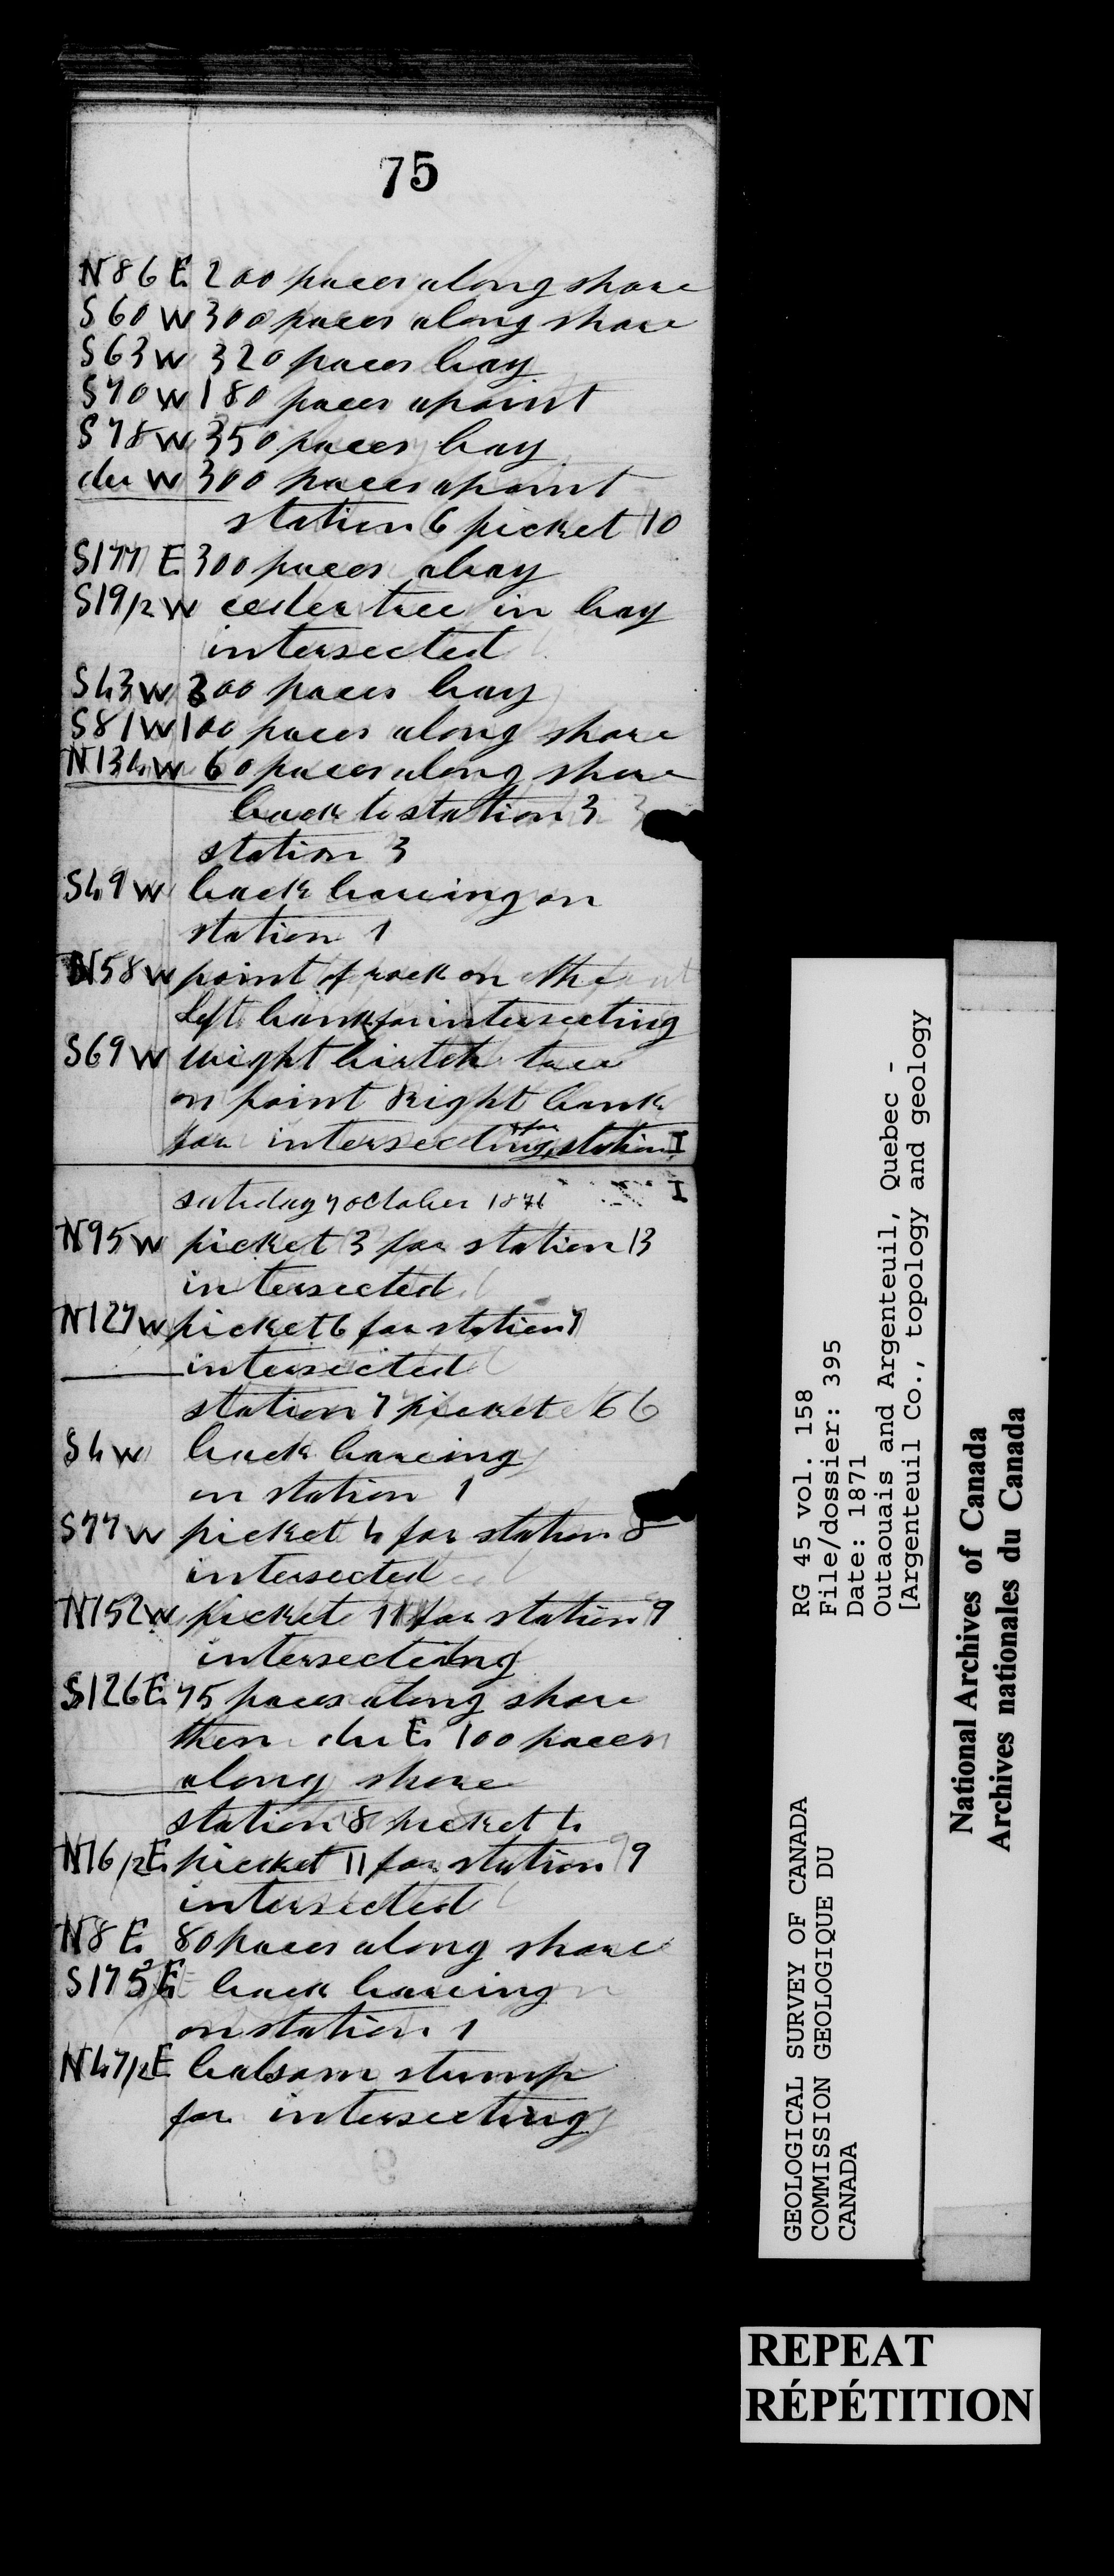 75
N86 E 200 paces along shore
S60 W 300 paces along shore
S63 W 320 paces bay
S70 W 180 paces apoint
S78 W 350 paces bay
du W 300 paces apoint
station 6 picket 10
S177 E 300 paces abay
S19/2 W ceder tree in bay
intersected
S43 W 300 paces bay
S81 W 100 paces along shore
N134 W 60 paces along shore
back to station 3
station 3
S49 W back bearing on
station 1
N58 W point of rock on the
left bank for intersecting
S69 W wight birtch tree
on point Right bank
for intersecting for station I
saturday 7 october 1871
I
N95 W picket 3 for station 13
intersected
N127 W picket 6 for station 7
intersected
station 7 picket 6
S4 W back bareing
on station 1
S77 W picket 4 for station 8
intersected
N152 W picket 11 for station 9
intersecting
S126 E 75 paces along shore
then du E 100 paces
along shore
station 8 picket 4
N16/2 E picket 11 for station 9
intersected
N8 E 80 paces along shore
S175 E back bareing
on station 1
N47/2 E balsam stump
for intersecting
RG 45 vol. 158
File/dossier: 395
Date: 1871
Outaouais and Argenteuil, Quebec -
[Argenteuil Co., topology and geology
GEOLOGICAL SURVEY OF CANADA
COMMISSION GEOLOGIQUE DU
CANADA
National Archives of Canada
Archives nationales du Canada
REPEAT
RÉPÉTITION